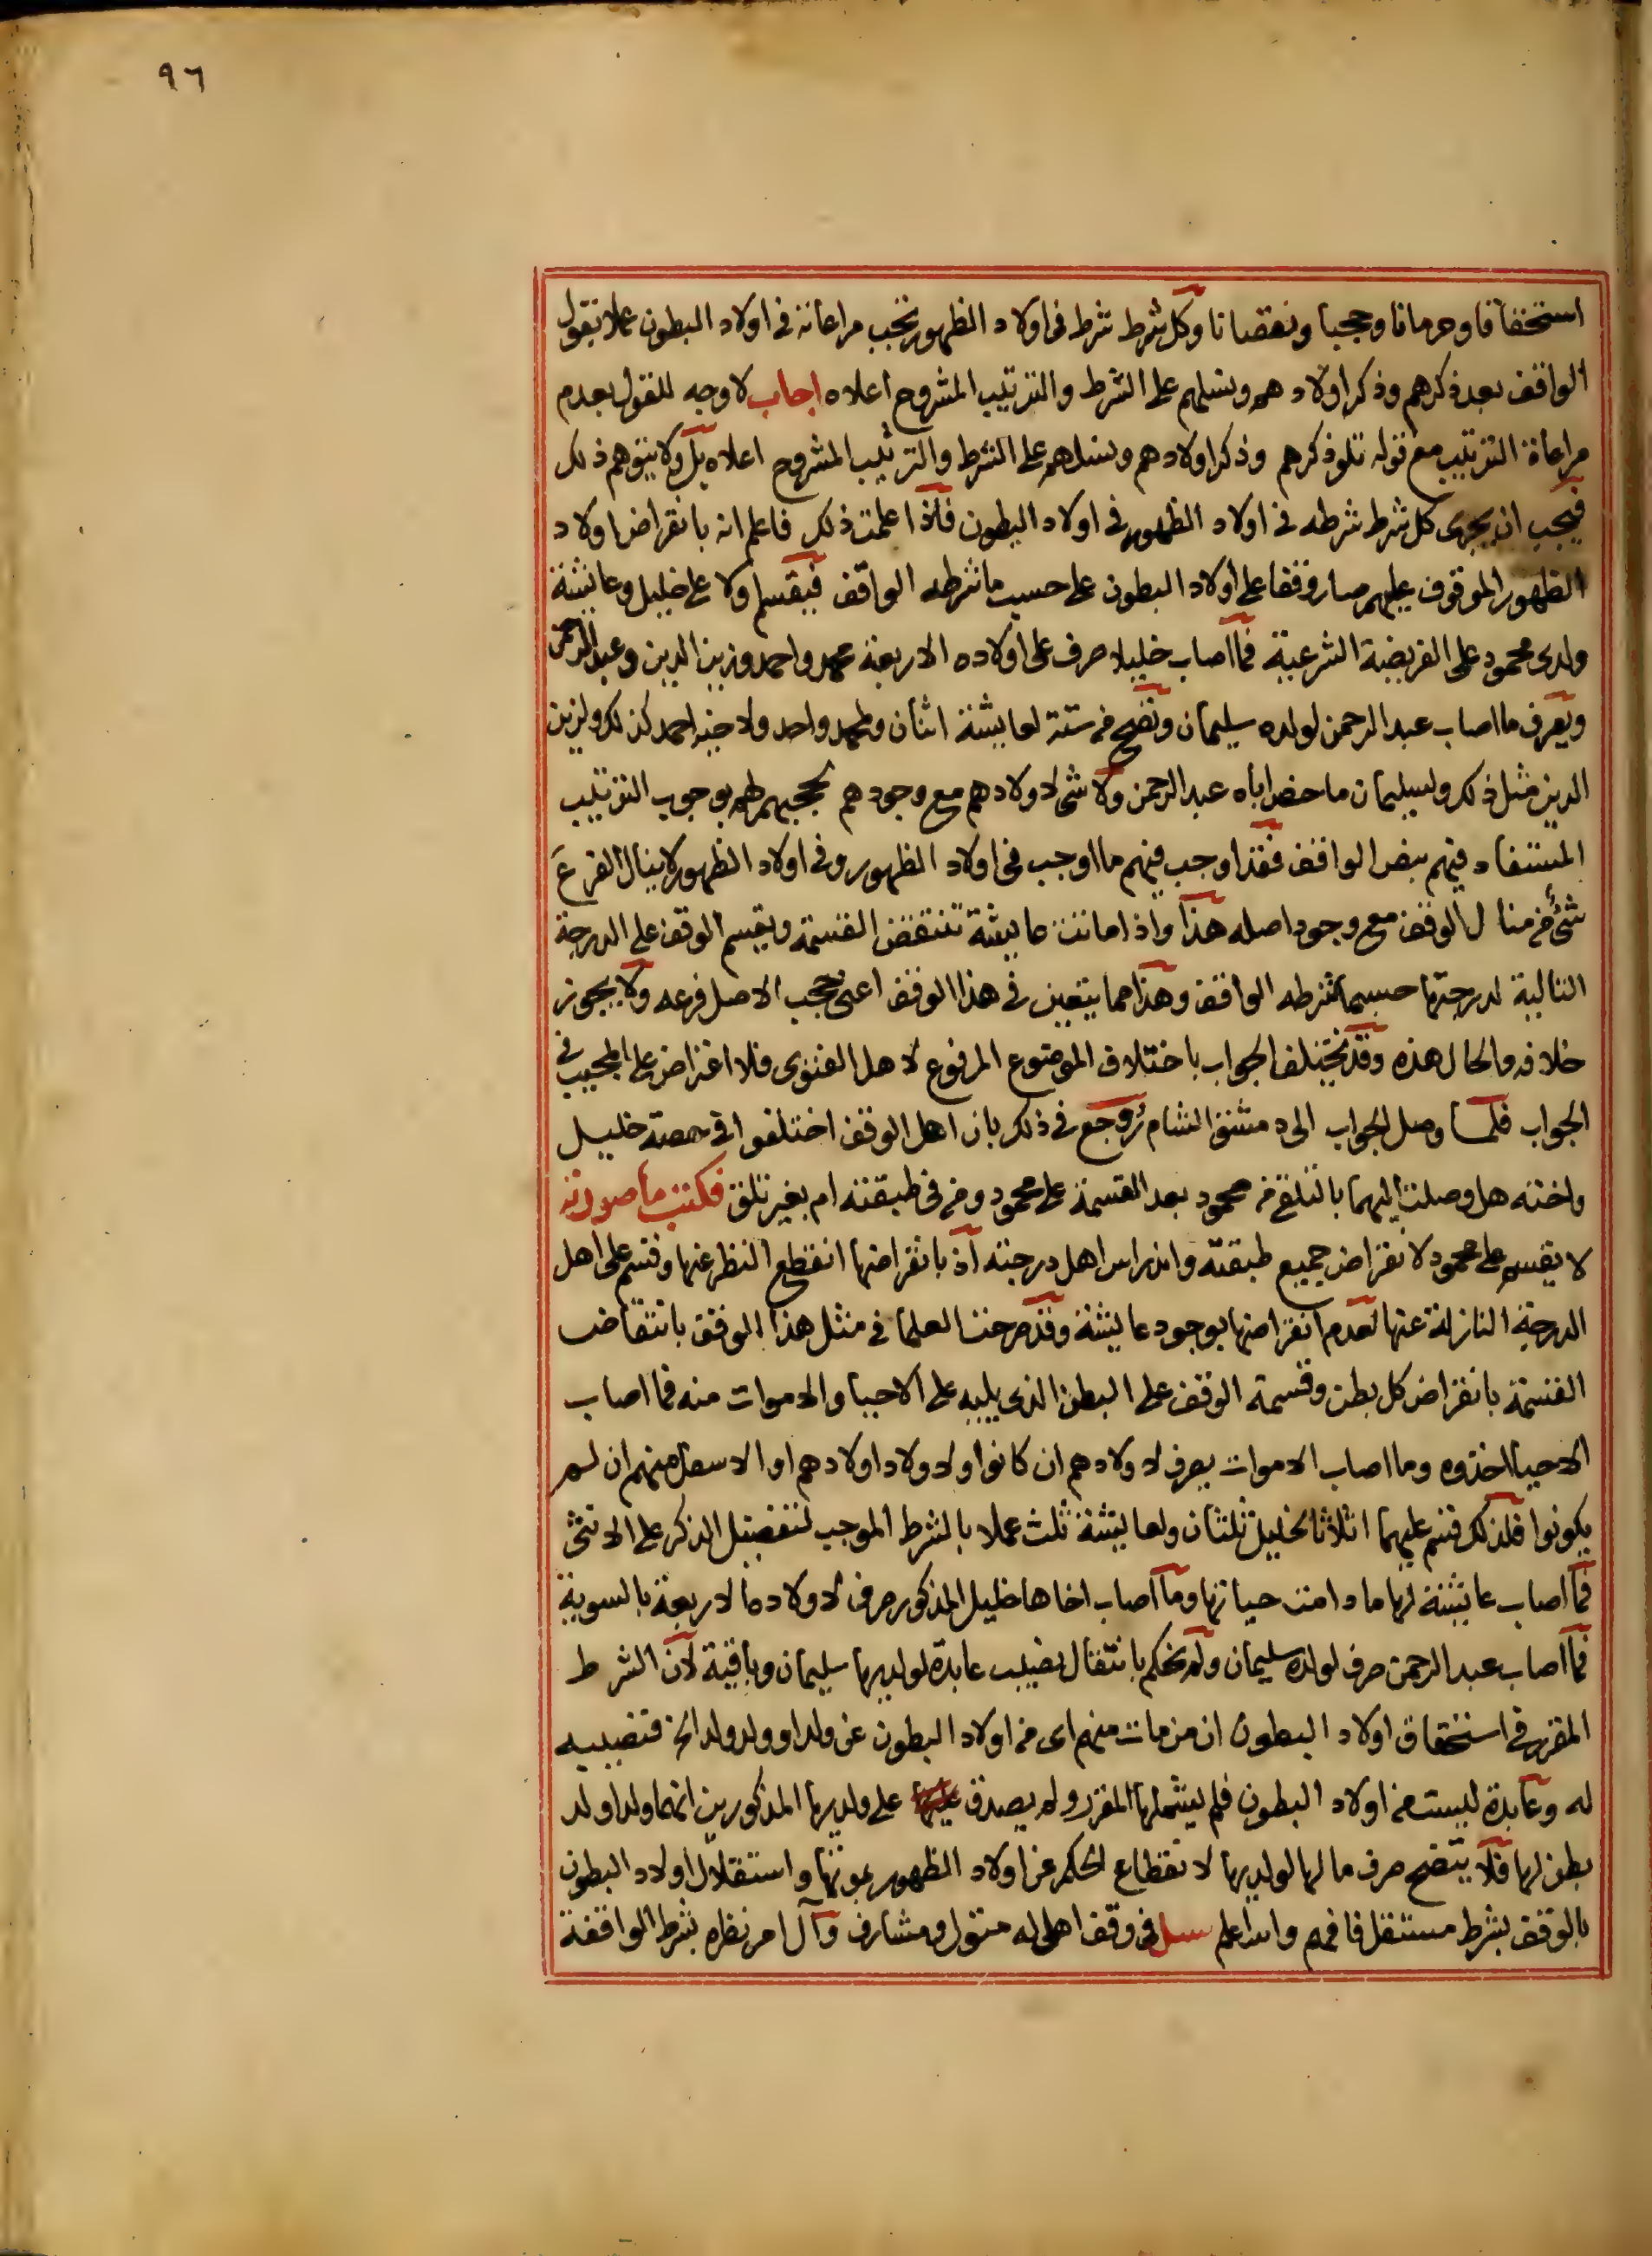 ٩٦
استحقاقا وحرمانا وحجبا ونقصانا وكل شرط شرط فى اولاد الظهور تجب مراعاته فى اولاد البطون عملا بقول
الواقف بعد ذكرهم وذكر اولادهم ونسلهم على الشرط والترتيب المشروح اعلاه اجاب لا وجه للقول بعدم
مراعاة الترتيب مع قوله تلو ذكرهم وذكر اولادهم ونسلهم على الشرط والترتيب المشروح اعلاه بل ولا يتوهم ذلك
فيجب ان يجرى كل شرط شرطه فى اولاد الظهور فى اولاد البطون فاذا علمت ذلك فاعلم انه بانقراض اولاد
الظهور الموقوف عليهم صار وقفا على اولاد البطون على حسب ما شرطه الواقف فيقسم اولا على خليل وعايشة
ولدى محمود على الفريضة الشرعية فما اصاب خليلا صرف على اولاده الاربعة محمد واحمد وزين الدين وعبد الرحمن
ويصرف ما اصاب عبد الرحمن لولده سليمان وتصح من ستة لعايشة اثنان ولمحمد واحد ولاخيه احمد كذلك ولزين
الدين مثل ذلك ولسليمان ما خص اباه عبد الرحمن ولا شى لاولادهم مع وجودهم لحجبهم لهم بوجوب الترتيب
المستفاد فيهم بنص الواقف فقد اوجب فيهم ما اوجب فى اولاد الظهور وفى اولاد الظهور لا ينال الفرع
شئ من منال الوقف مع وجود اصله هذا واذا ماتت عايشة تنتقض القسمة ويقسم الوقف على الدرجة
التالية لدرجتها حسبما شرطه الواقف وهذا مما يتعين فى هذا الوقف اعنى حجب الاصل فرعه ولا يجوز
خلافه والحال هذه وقد يختلف الجواب باختلاف الموضوع المرفوع لاهل الفتوى فلا اعتراض على المجيب فى
الجواب فلما وصل الجواب الى دمشق الشام روجع فى ذلك بان اهل الوقف اختلفوا فى حصة خليل
واخته هل وصلت اليهما بالتلقى من محمود بعد القسمة على محمود ومن فى طبقته ام بغير تلق فكتب ما صورته
لا يقسم على محمود لانقراض جميع طبقته واندراس اهل درجته اذ بانقراضها انقطع النظر عنها وقسم على اهل
الدرجة النازلة عنها لعدم انقراضها بوجود عايشة وقد صرحت العلما فى مثل هذا الوقف بانتقاض
القسمة بانقراض كل بطن وقسمة الوقف على البطن الذى يليه على الاحيا والاموات منه فما اصاب
الاحيا اخذوه وما اصاب الاموات يصرف لاولادهم ان كانوا ولاولاد اولادهم او الاسفل منهم ان لم
يكونوا فلذلك قسم عليهما اثلاثا لخليل ثلثان ولعايشة ثلث عملا بالشرط الموجب لتفضيل الذكر على الانثى
فما اصاب عايشة لها ما دامت حياتها وما اصاب اخاها خليل المذكور صرف لاولاده الاربعة بالسوية
فما اصاب عبد الرحمن صرف لولده سليمان ولم نحكم بانتقال نصيب عابدة لولديها سليمان وباقية لان الشرط
المقرر فى استحقاق اولاد البطون ان من مات منهم اى من اولاد البطون عن ولد او ولد ولد الخ فنصيبه
له وعابدة ليست من اولاد البطون فلم يشملها المقرر ولم يصدق على ولديها المذكورين انهما ولد اولد
بطن لها فلا يتضح صرف ما لها لولديها لانقطاع الحكم عن اولاد الظهور بموتها واستقلال اولاد البطون
بالوقف بشرط مستقل فافهم والله اعلم سئل فى وقف اهلى له متول ومشارف وآل امر نظره بشرط الواقفة